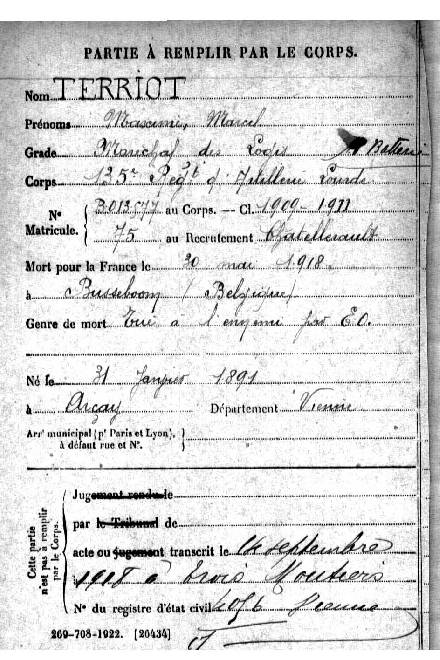 PARTIE À REMPLIR PAR LE CORPS.
Nom TERRIOT
Prénoms Maxime, Marcel
Grade Marechal des Logis Batterie
Corps 135e Regt d'Artillerie Lourde
N° Matricule. au Corps. — Cl. 1909 - 1911
75 au Recrutement Chatellerault
Mort pour la France le 20 mai 1918
à Busseboom (Belgique)
Genre de mort Tué à l'ennemi par E.O.
Né le 31 Janvier 1891
à Arçay Département Vienne
Arrt municipal (pr Paris et Lyon),
à défaut rue et N°.
Cette partie n'est pas à remplir par le Corps.
Jugement rendu le
par le Tribunal de
acte ou jugement transcrit le 14 septembre
1918 à Trois Moutiers
N° du registre d'état civil Vienne
269-708-1922. [20434]